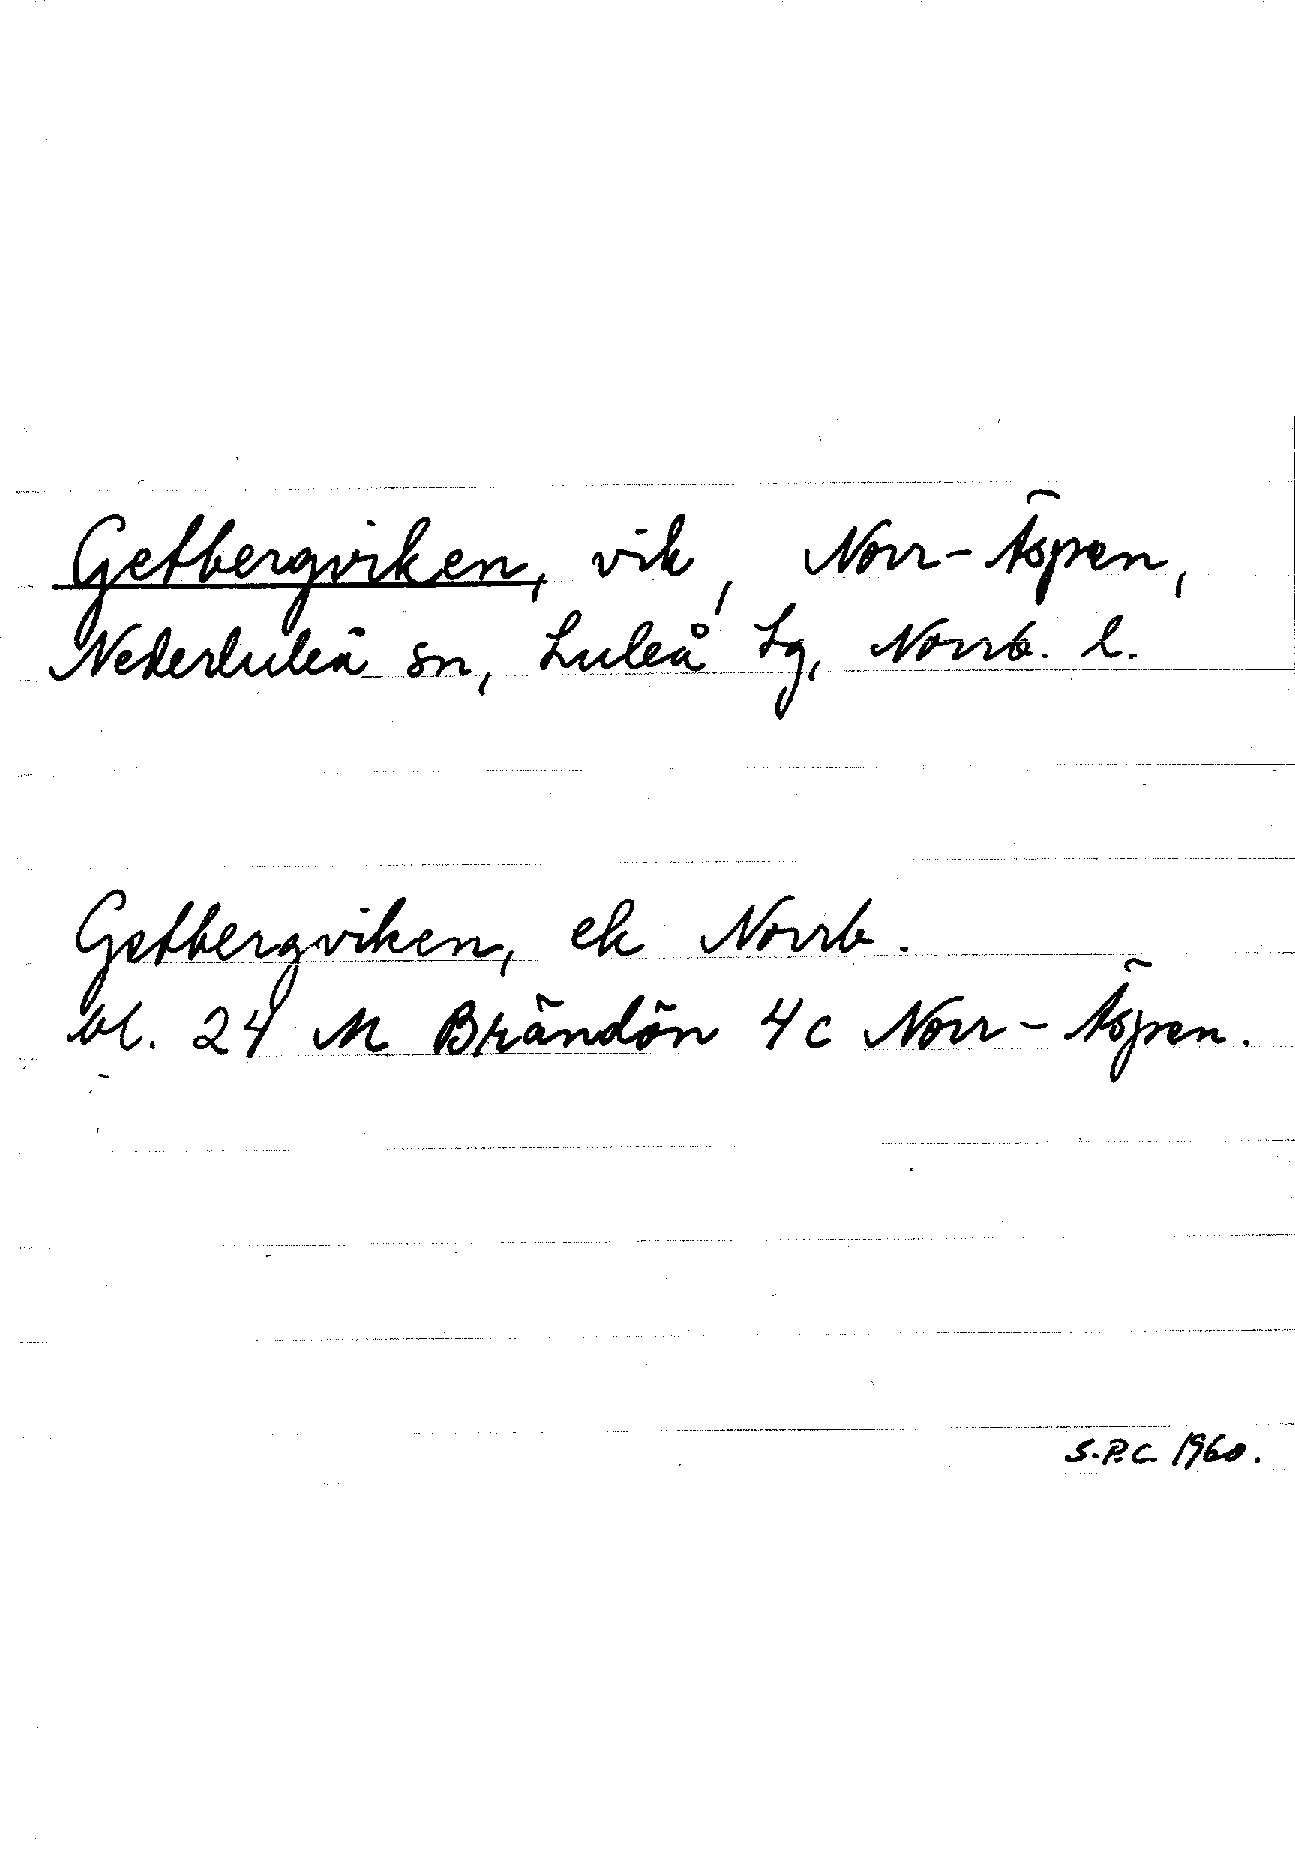 Getbergviken, vik, Norr-Äspen,
Nederluleå sn, Luleå tg, Norrb. l.
Getbergviken, ek Norrb.
bl. 24 M Brändön 4 c Norr-Äspen.
S.P.C. 1960.